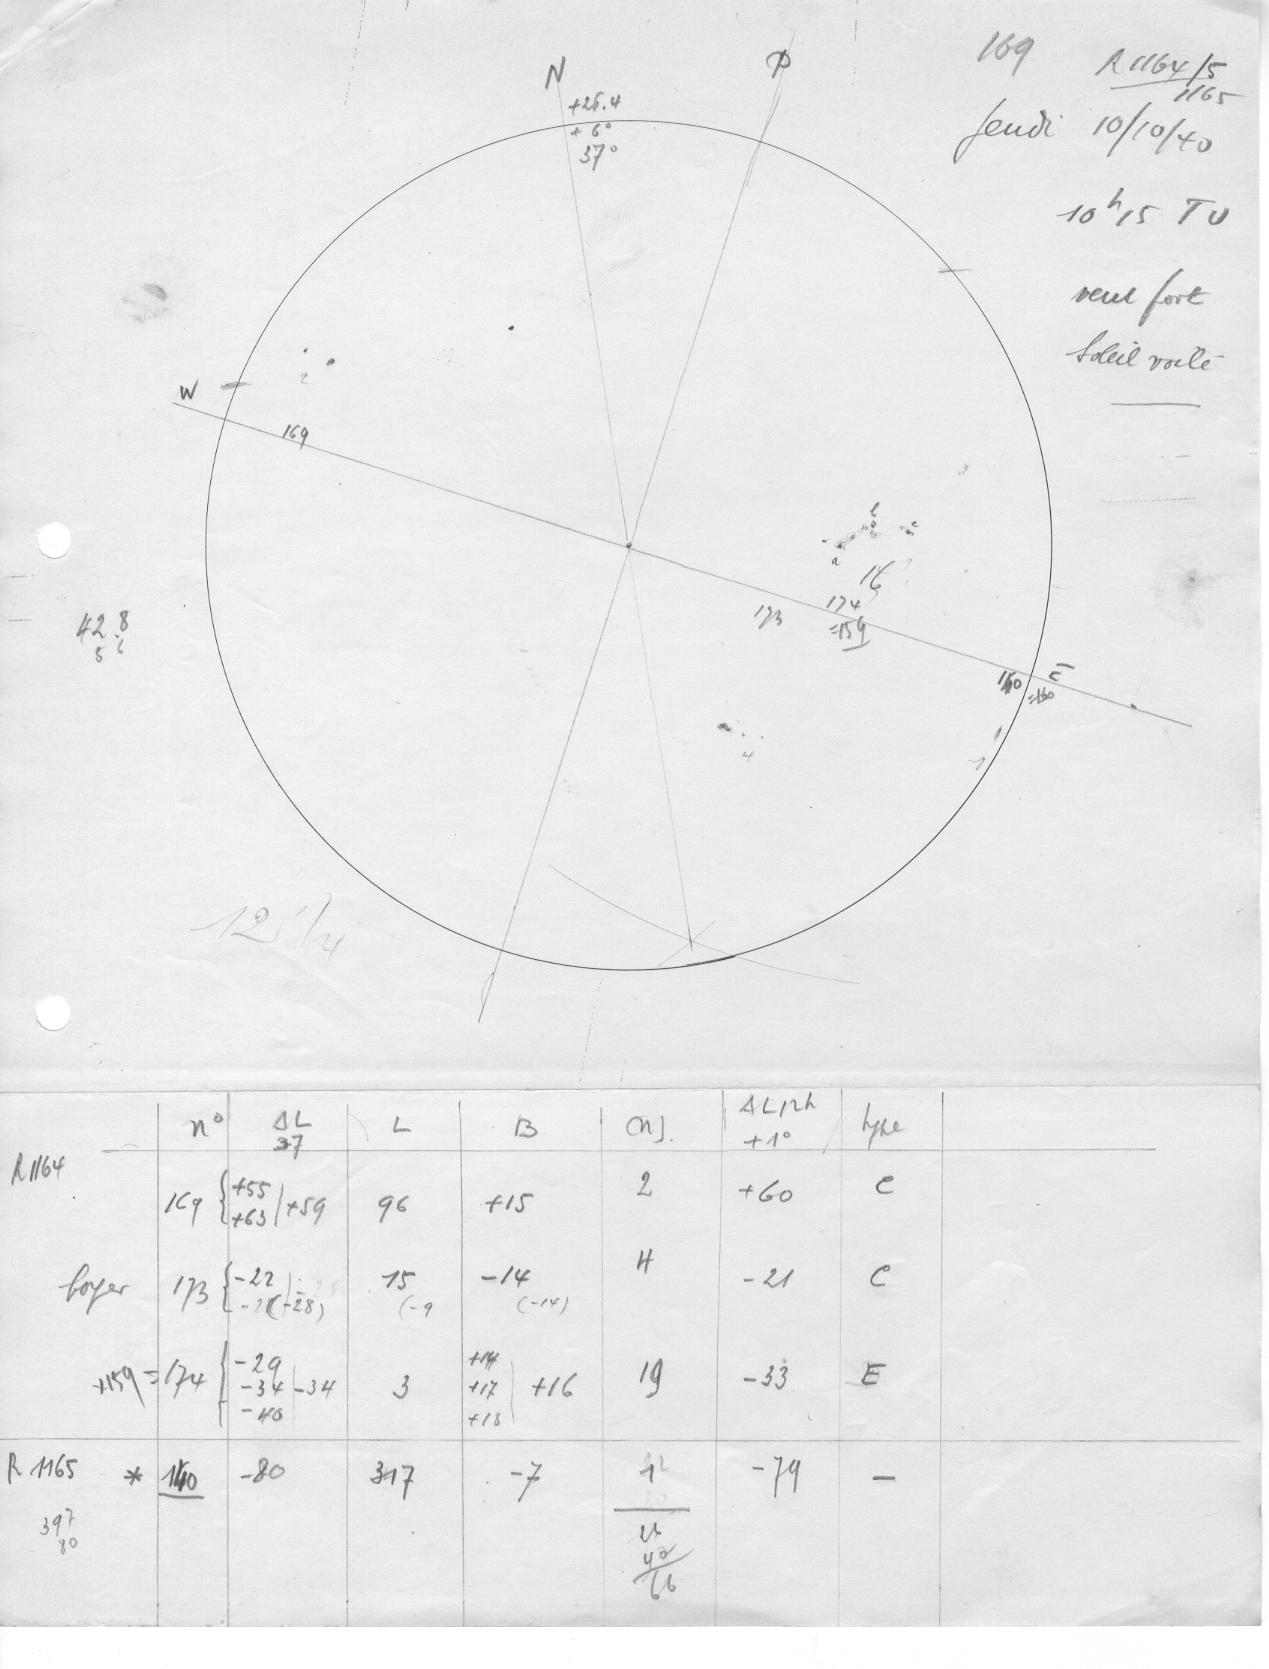 N
P
169
R 1164/5
1165
+26.4
+6°
37°
Jeudi 10/10/40
10h15 TU
vent fort
Soleil voilé
W
2
169
b
c
a
16
173
174
=159
E
140
42.8
4
1
12 1/4
n° ΔL L B (N). ΔL12h type
37 +1°
R1164
169 +55 +59 96 +15 2 +60 C
+63
foyer 173 -22 15 -14 4 -21 C
(-28) (-9 (-14)
+159 = 174 -29 -34 3 +14 +16 19 -33 E
-34 +17
-40 +18
R 1165 * 140 -80 317 -7 1 -79 –
397
80
26
40
66